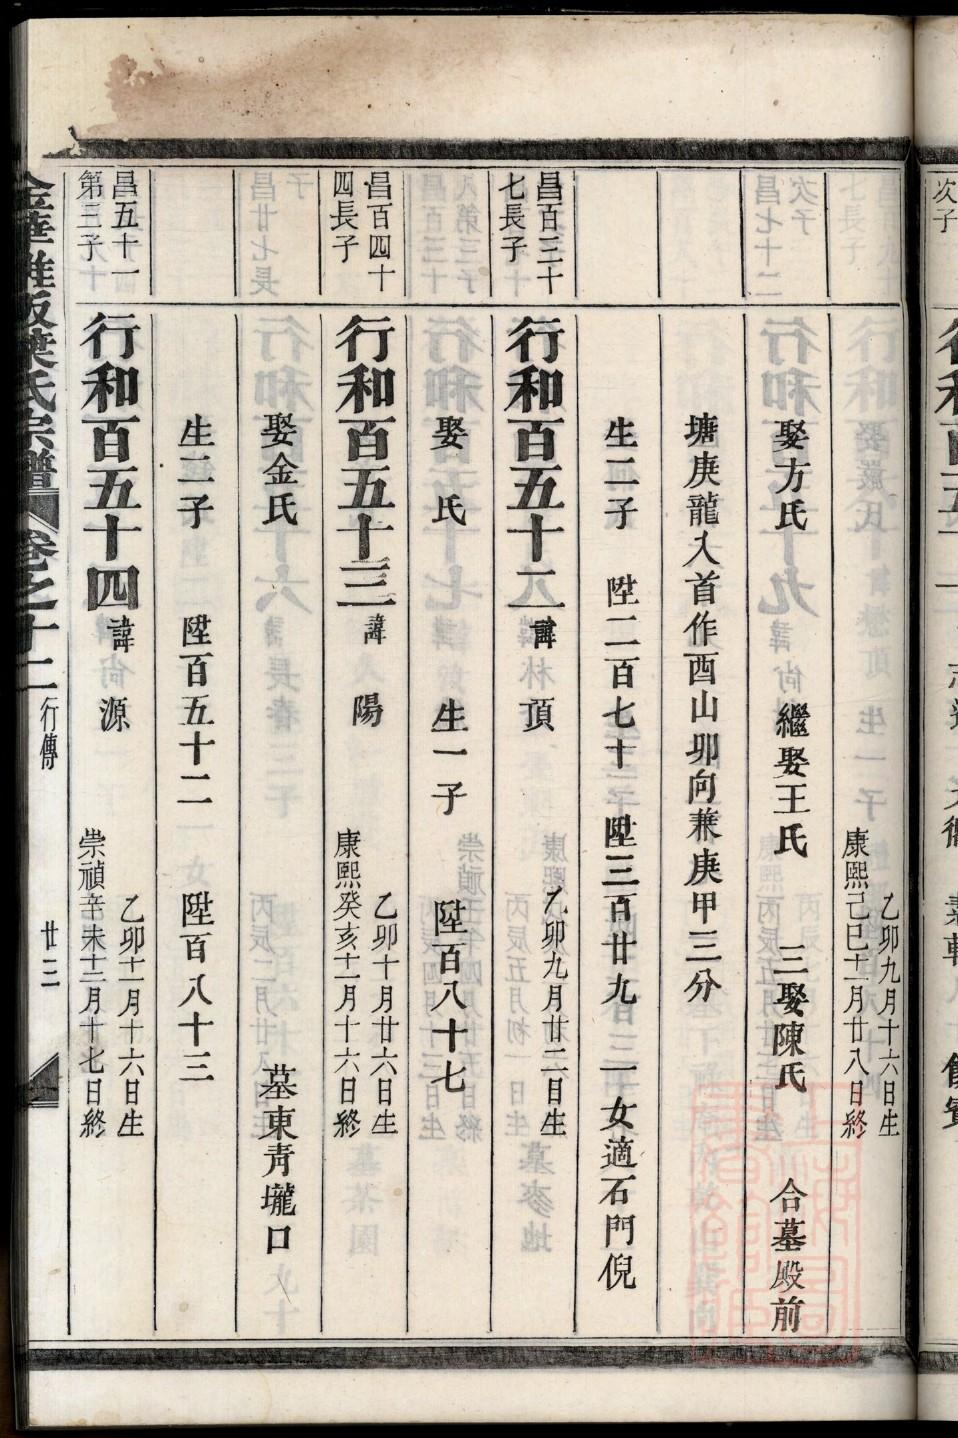 乙卯九月十六日生
康熙己巳十一月廿八日終
娶方氏　繼娶王氏　三娶陳氏　合墓殿前
塘庚龍入首作酉山卯向兼庚甲三分
生二子　陞二百七十一　陞三百廿九　一女適石門倪
昌百三十七長子
行和百五十二　諱　頂　乙卯九月廿二日生
娶　氏　生一子　陞百八十七
昌百四十四長子
行和百五十三　諱　陽　乙卯十月廿六日生
康熙癸亥十一月十六日終
娶金氏　墓東青壠口
生二子　陞百五十二　陞百八十三
昌五十一第三子
行和百五十四　諱　源　乙卯十一月十六日生
崇禎辛未十二月十七日終
葉氏宗譜　卷之十二　行傳　廿三
次子